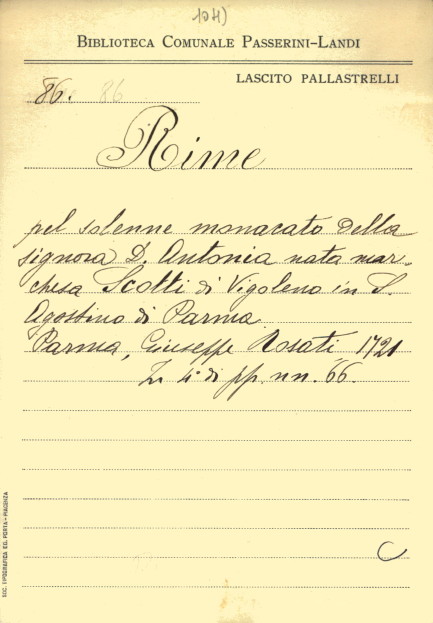 104)
BIBLIOTECA COMUNALE PASSERINI-LANDI
LASCITO PALLASTRELLI
86. 86
Rime
pel solenne monacato della
signora D. Antonia nata mar-
chesa Scotti di Vigoleno in S.
Agostino di Parma
Parma, Giuseppe Rosati, 1721
In 4° di pp. nn. 66.
C
SOC. TIPOGRAFICA ED. PORTA-PIACENZA